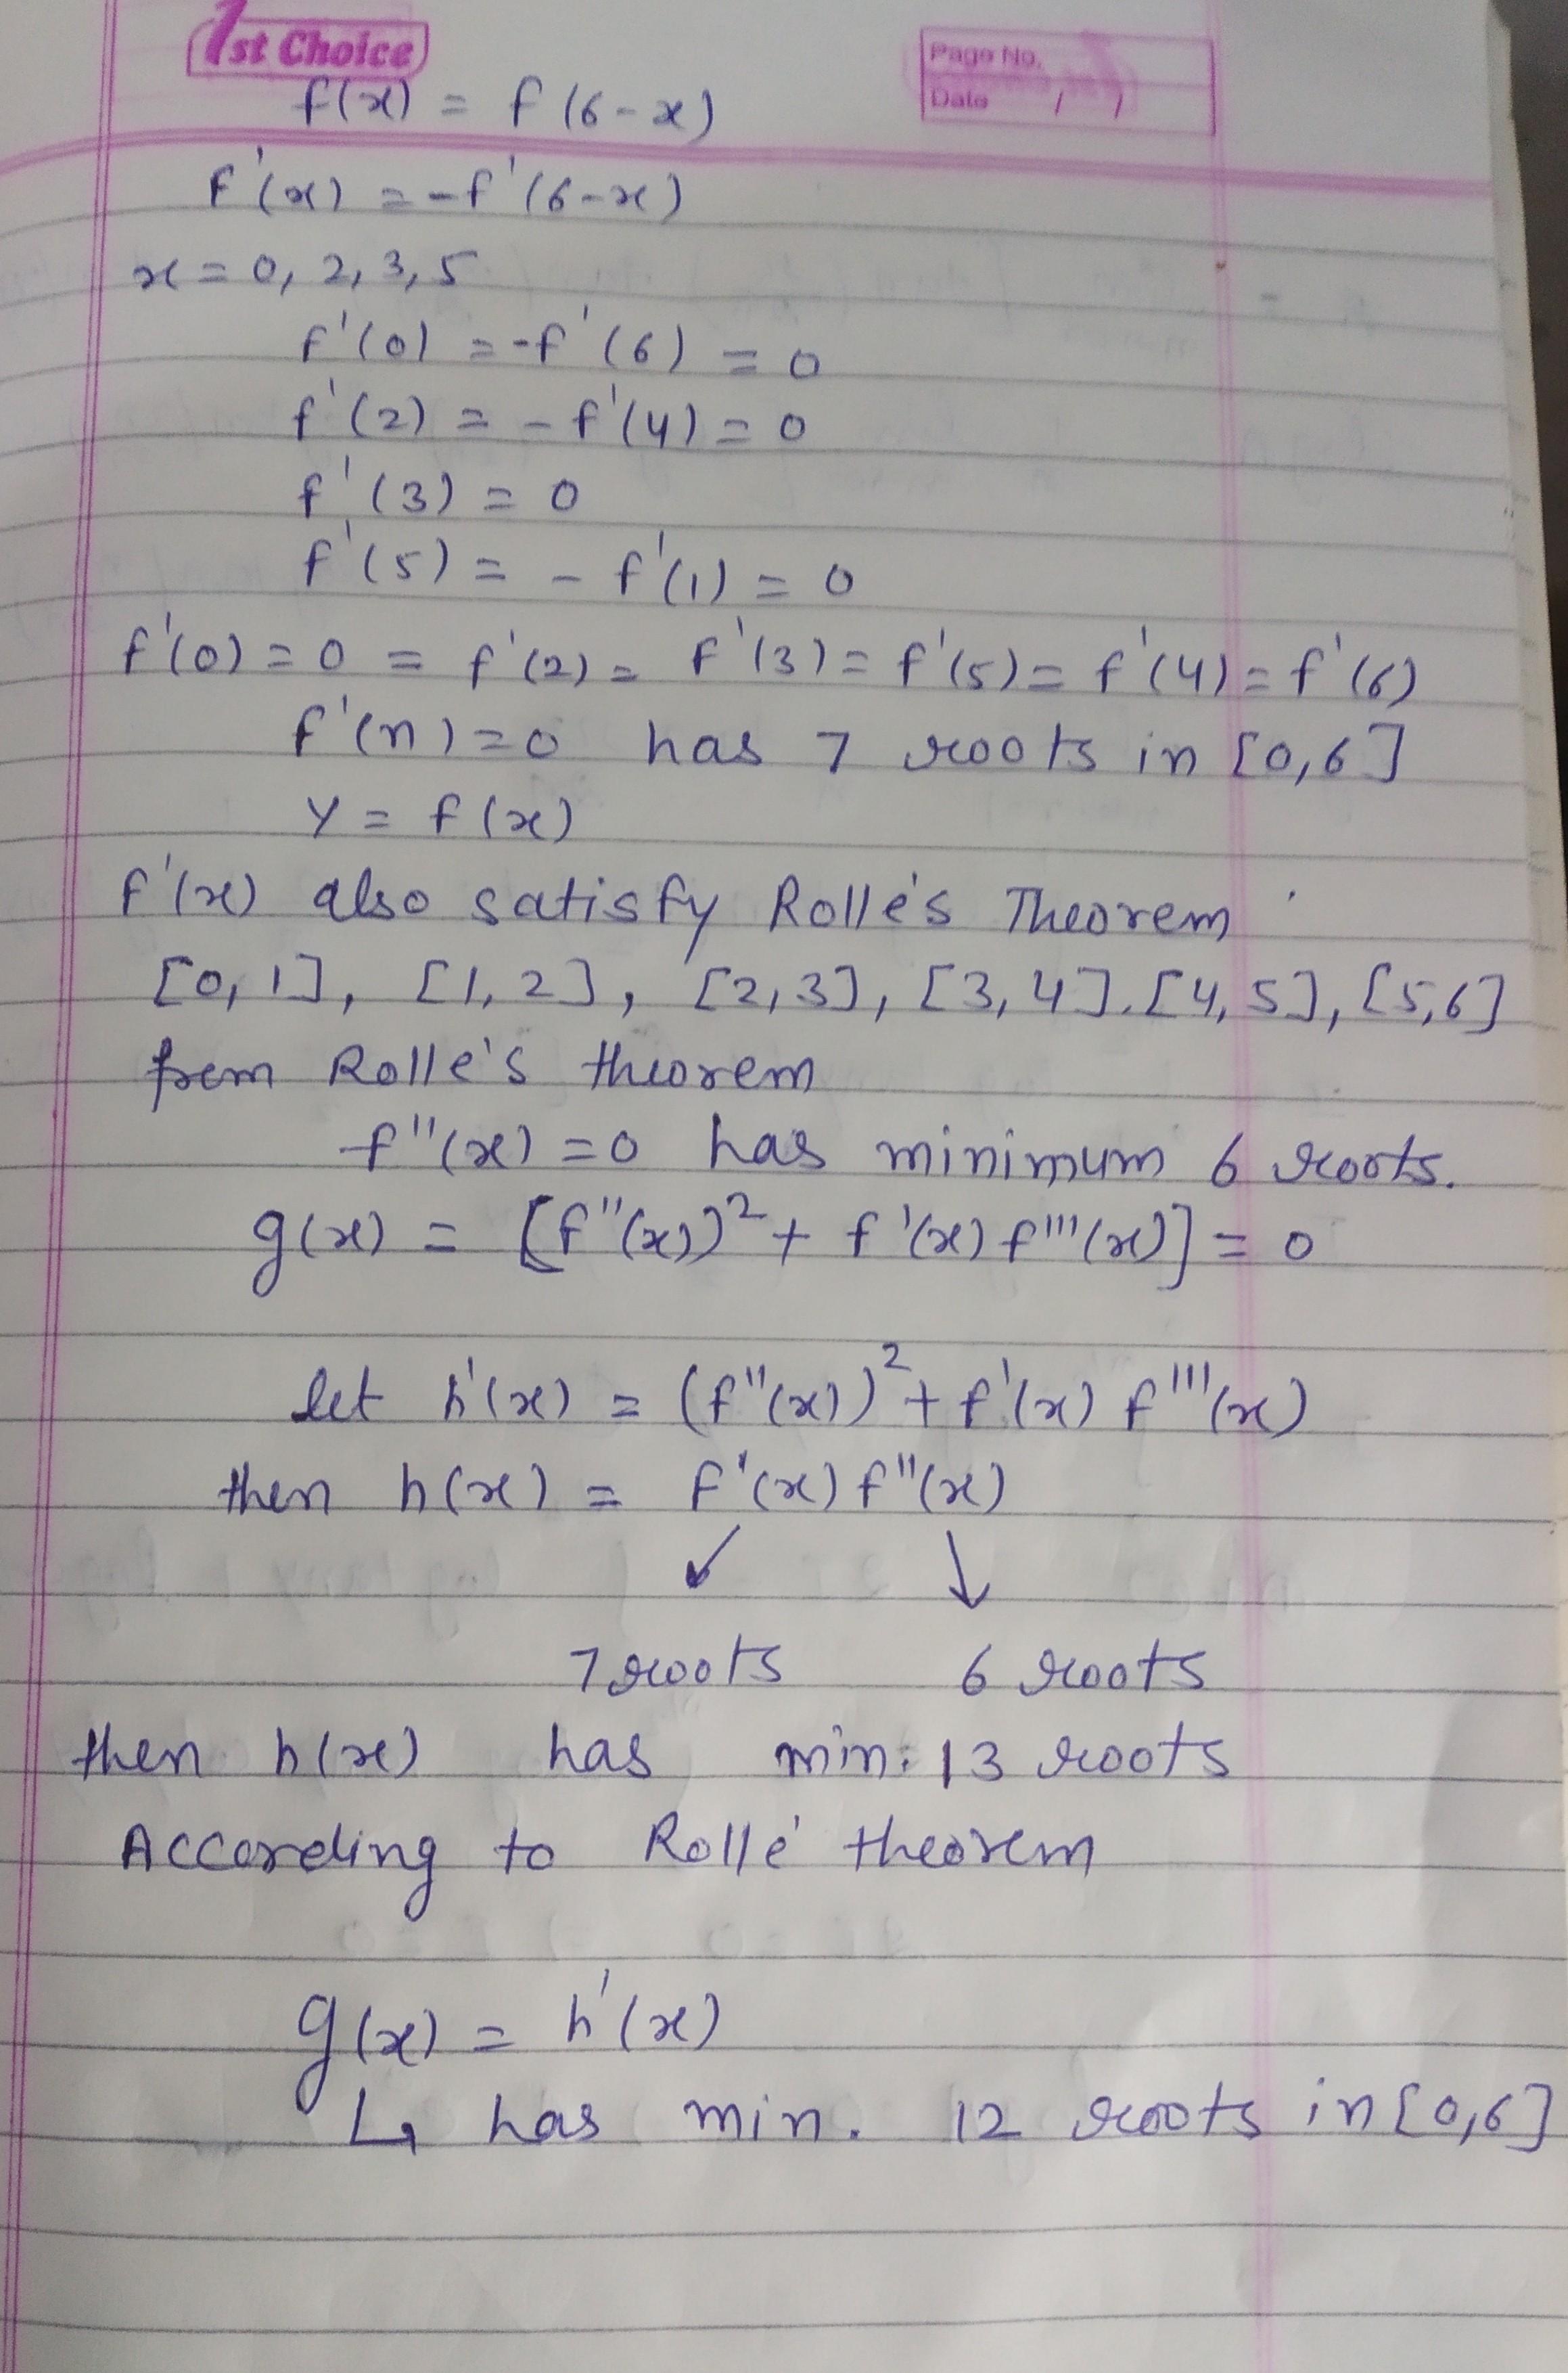 1st Choice
Page No.
Date / /
f(x) = f(6-x)
f'(x) = -f'(6-x)
x = 0, 2, 3, 5
f'(0) = -f'(6) = 0
f'(2) = -f'(4) = 0
f'(3) = 0
f'(5) = - f'(1) = 0
f'(0) = 0 = f'(2) = f'(3) = f'(5) = f'(4) = f'(6)
f'(n) = 0 has 7 roots in [0,6]
y = f(x)
f'(x) also satisfy Rolle's Theorem
[0, 1], [1, 2], [2, 3], [3, 4]. [4, 5], [5,6]
from Rolle's theorem
f''(x) = 0 has minimum 6 roots.
g(x) = [f''(x))² + f'(x) f'''(x)] = 0
let h'(x) = (f''(x))² + f'(x) f'''(x)
then h(x) = f'(x) f''(x)
↙ ↓
7 roots 6 roots
then h(x) has min. 13 roots
According to Rolle' theorem
g(x) = h'(x)
↳ has min. 12 roots in [0,6]